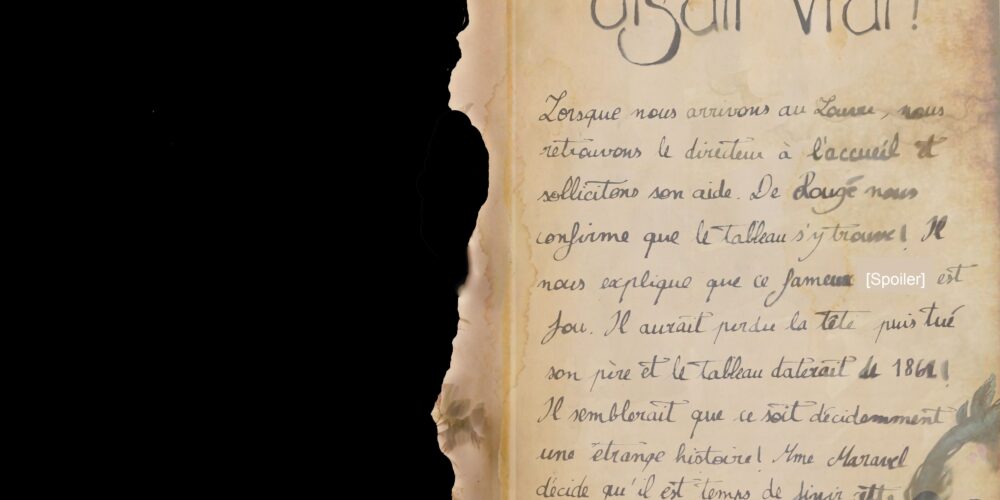 disait vrai!
Lorsque nous arrivons au Louvre, nous
retrouvons le directeur à l'accueil et
sollicitons son aide. De Rougé nous
confirme que le tableau s'y trouve! Il
nous explique que ce fameux [Spoiler] est
fou. Il aurait perdu la tête puis tué
son père et le tableau daterait de 1861!
Il semblerait que ce soit décidemment
une étrange histoire! Mme Maravel
décide qu'il est temps de finir cette